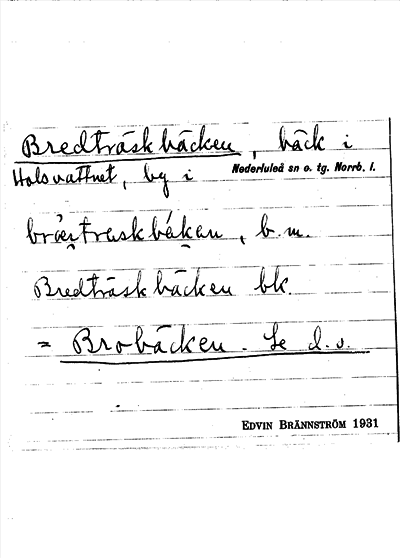 Bredträskbäcken, bäck i
Holsvattnet, by i Nederluleå sn o. tg. Norrb. l.
bræ̀ṭraskbǽkɐn, b. m.
Bredträskbäcken bk.
= Brobäcken. Se d.o.
EDVIN BRÄNNSTRÖM 1931